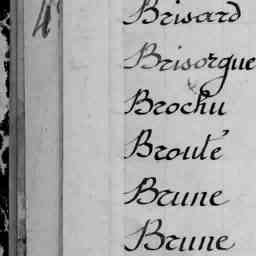 4e
Brisard
Brisorgue
Brochu
Broulé
Brune
Brune